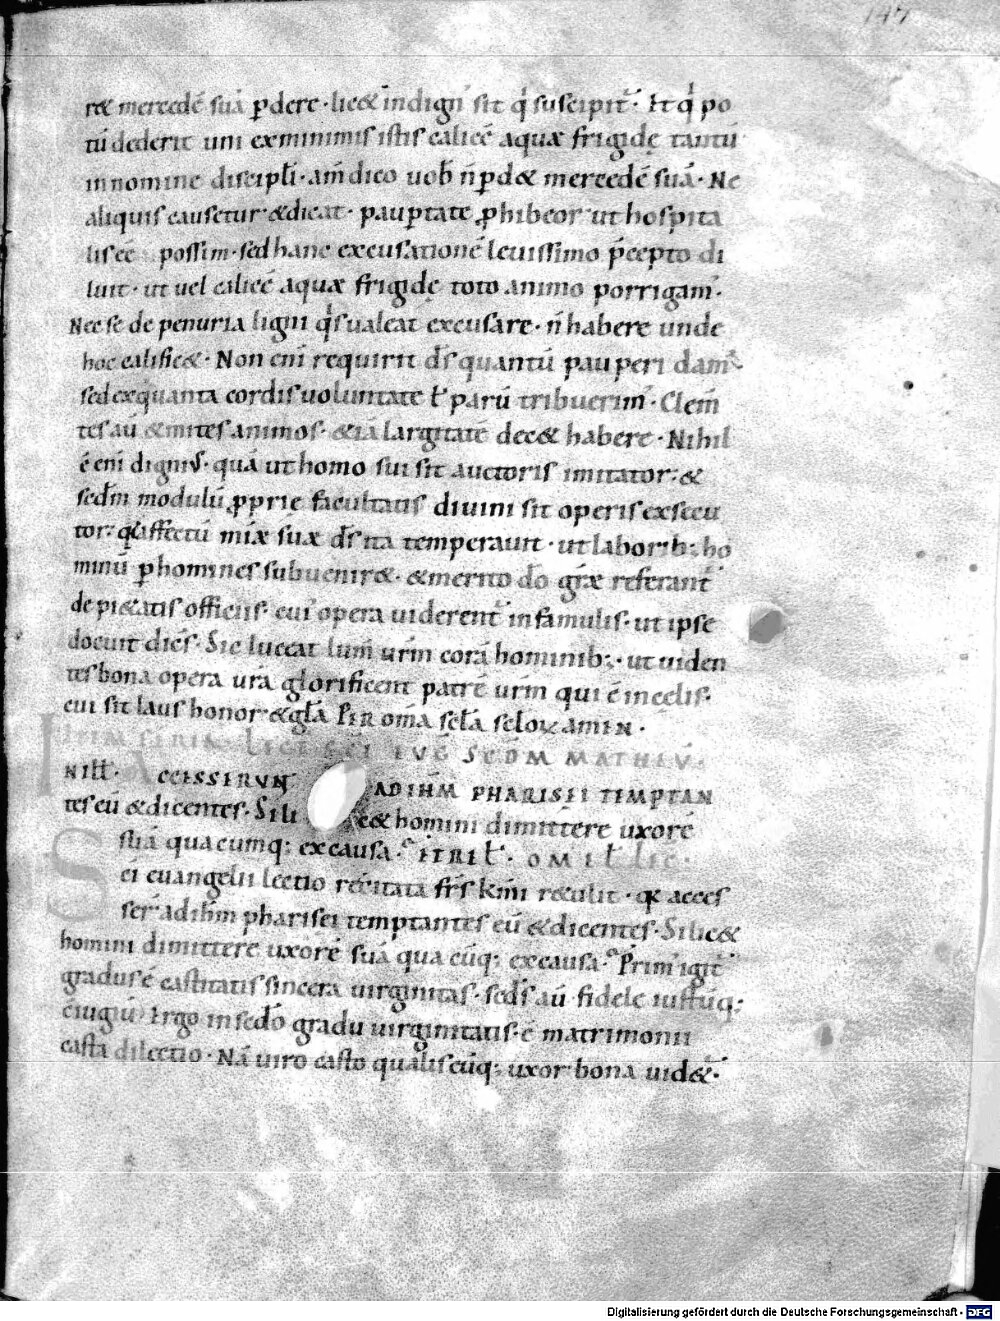 147
r& mercedē suā ꝑdere · lic& indign' sit q̇ suscipit᷑ · Et q̇ po
tū dederit uni ex minimis istis calicē aquæ frigidę tantū
in nomine discipłi · am̄ dico uob̄ n̄ ꝑd& mercedē suā · Ne
aliquis causetur & dicat · pauꝑtate ꝓhibeor ut hospita
lis eē possim · sed hanc excusationē leuissimo p̄cepto di
luit · ut uel calicē aquæ frigidę toto animo porrigam' ·
Nec se de penuria ligni q̇s ualeat excusare · n̄ habere unde
hoc calific& · Non eni requirit d̄s quantū pauperi dam'
sed ex quanta cordis uoluntate ł parū tribuerim' · Clem̄
tes aū & mites animos · & iā largitatē dec& habere · Nihil
ē eni dignius · quā ut homo sui sit auctoris imitator · &
scdm̄ modulū ꝓprię facultatis diuini sit operis exsecu
tor · qa affectū mīæ suæ d̄s ita temperauit · ut laborib; ho
minū ꝑ homines subuenir& · & merito dō gr̄æ referant᷑
de pi&atis officiis · cui' opera uiderent᷑ in famulis · ut ipse
docuit dicēs · Sic luceat lum̄ urm̄ corā hominib; · ut uiden
tes bona opera urā glorificent patrē urm̄ qui ē in celis ·
cui sit laus honor & gła PER om̄a scła scłoꝝ amen ·
ITEM LECT SC̄I EVḠ SECDM MATHEV̄ ·
IN ILL̄ · ACCESSERVNT AD IHM̄ PHARISEI TEMPTAN
tes eū & dicentes · Si li c& homini dimittere uxorē
suā quacumq; ex causa · ET REL̄ · OMEL̄
Sci euangelii lectio recitata fr̄s km̄i r&ulit · qa acces
ser̄ ad ihm̄ pharisei temptantes eū & dicentes · Si lic&
homini dimittere uxorē suā quacūq; ex causa · Prim' igit᷑
gradus ē castitatis sincera uirginitas · scd̄s aū fidele iustūq;
c̄iugiū · Ergo in sedō gradu uirginitatis ē matrimonii
casta dilectio · Nā uiro casto qualiscūq; uxor bona uid&᷑ ·
Digitalisierung gefördert durch die Deutsche Forschungsgemeinschaft - DFG